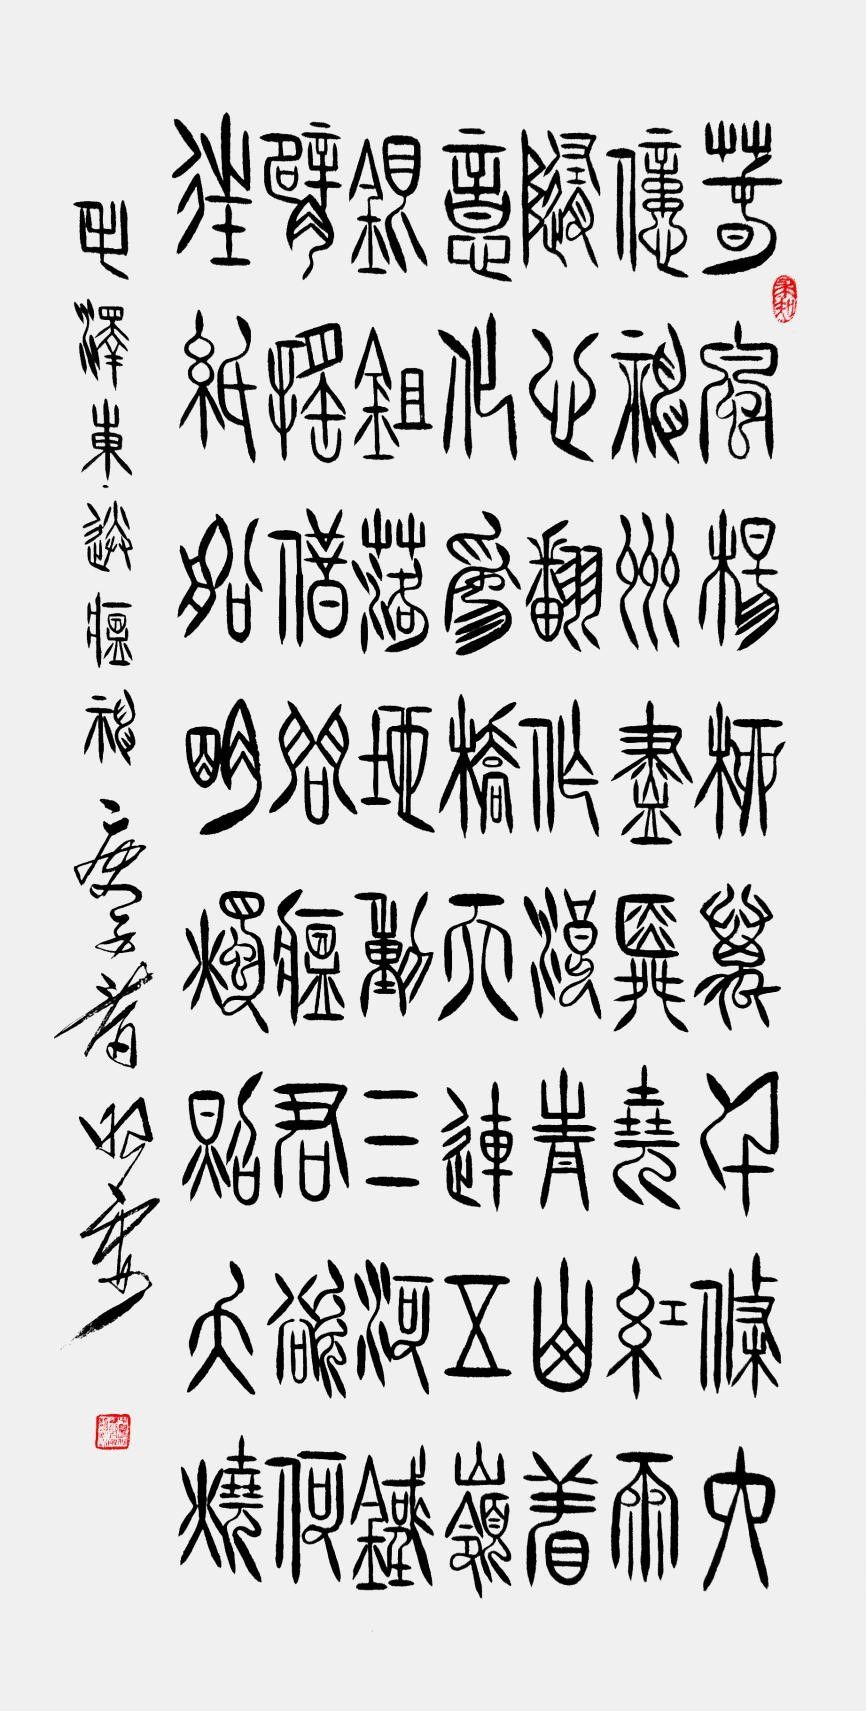 春風楊柳萬千條六
億神州盡舜堯紅雨
隨心翻作浪青山着
意化爲橋天連五嶺
銀鉏落地動三河鐵
臂搖借問瘟君欲何
往紙船明燭照天燒
毛澤東送瘟神庚子春